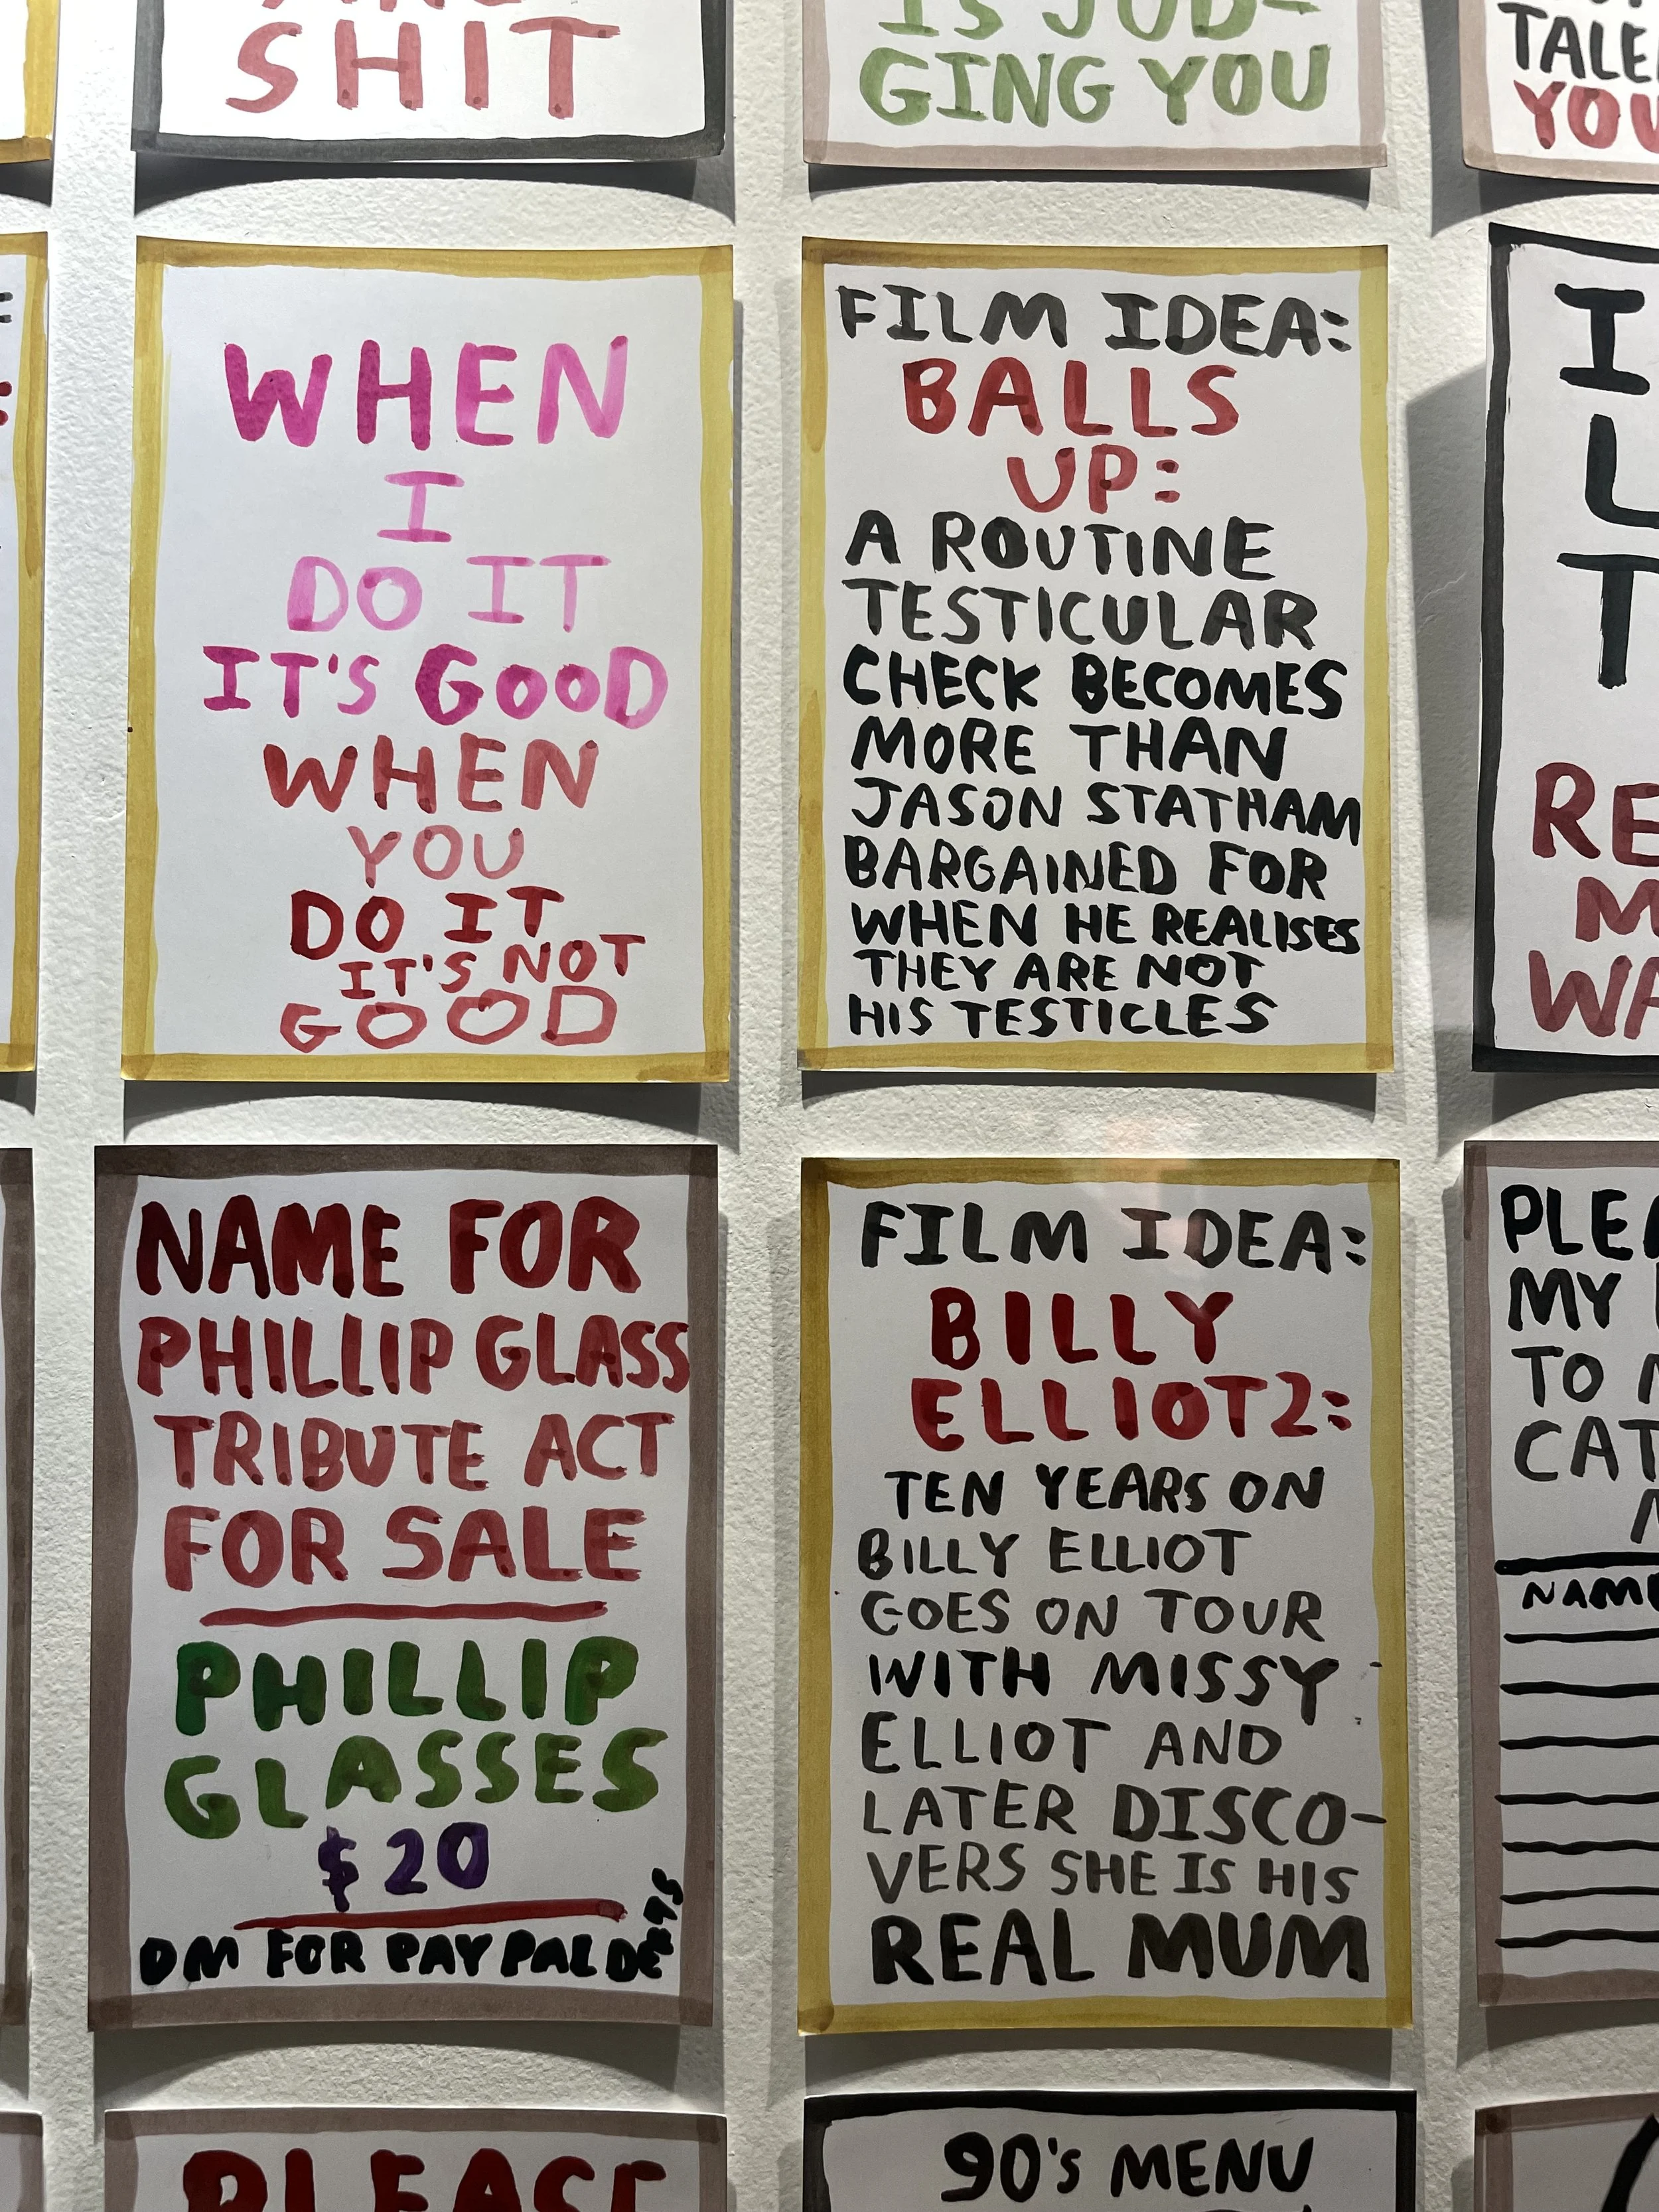 SHIT
IS JUD-
GING YOU
YOU
WHEN
I
DO IT
IT'S GOOD
WHEN
YOU
DO IT
IT'S NOT
GOOD
FILM IDEA:
BALLS
UP:
A ROUTINE
TESTICULAR
CHECK BECOMES
MORE THAN
JASON STATHAM
BARGAINED FOR
WHEN HE REALISES
THEY ARE NOT
HIS TESTICLES
I
L
T
RE
M
WA
NAME FOR
PHILLIP GLASS
TRIBUTE ACT
FOR SALE
PHILLIP
GLASSES
$20
DM FOR PAYPAL
FILM IDEA:
BILLY
ELLIOT2:
TEN YEARS ON
BILLY ELLIOT
GOES ON TOUR
WITH MISSY
ELLIOT AND
LATER DISCO-
VERS SHE IS HIS
REAL MUM
PLEA
MY
TO
CAT
NAME
PLEASE
90's MENU